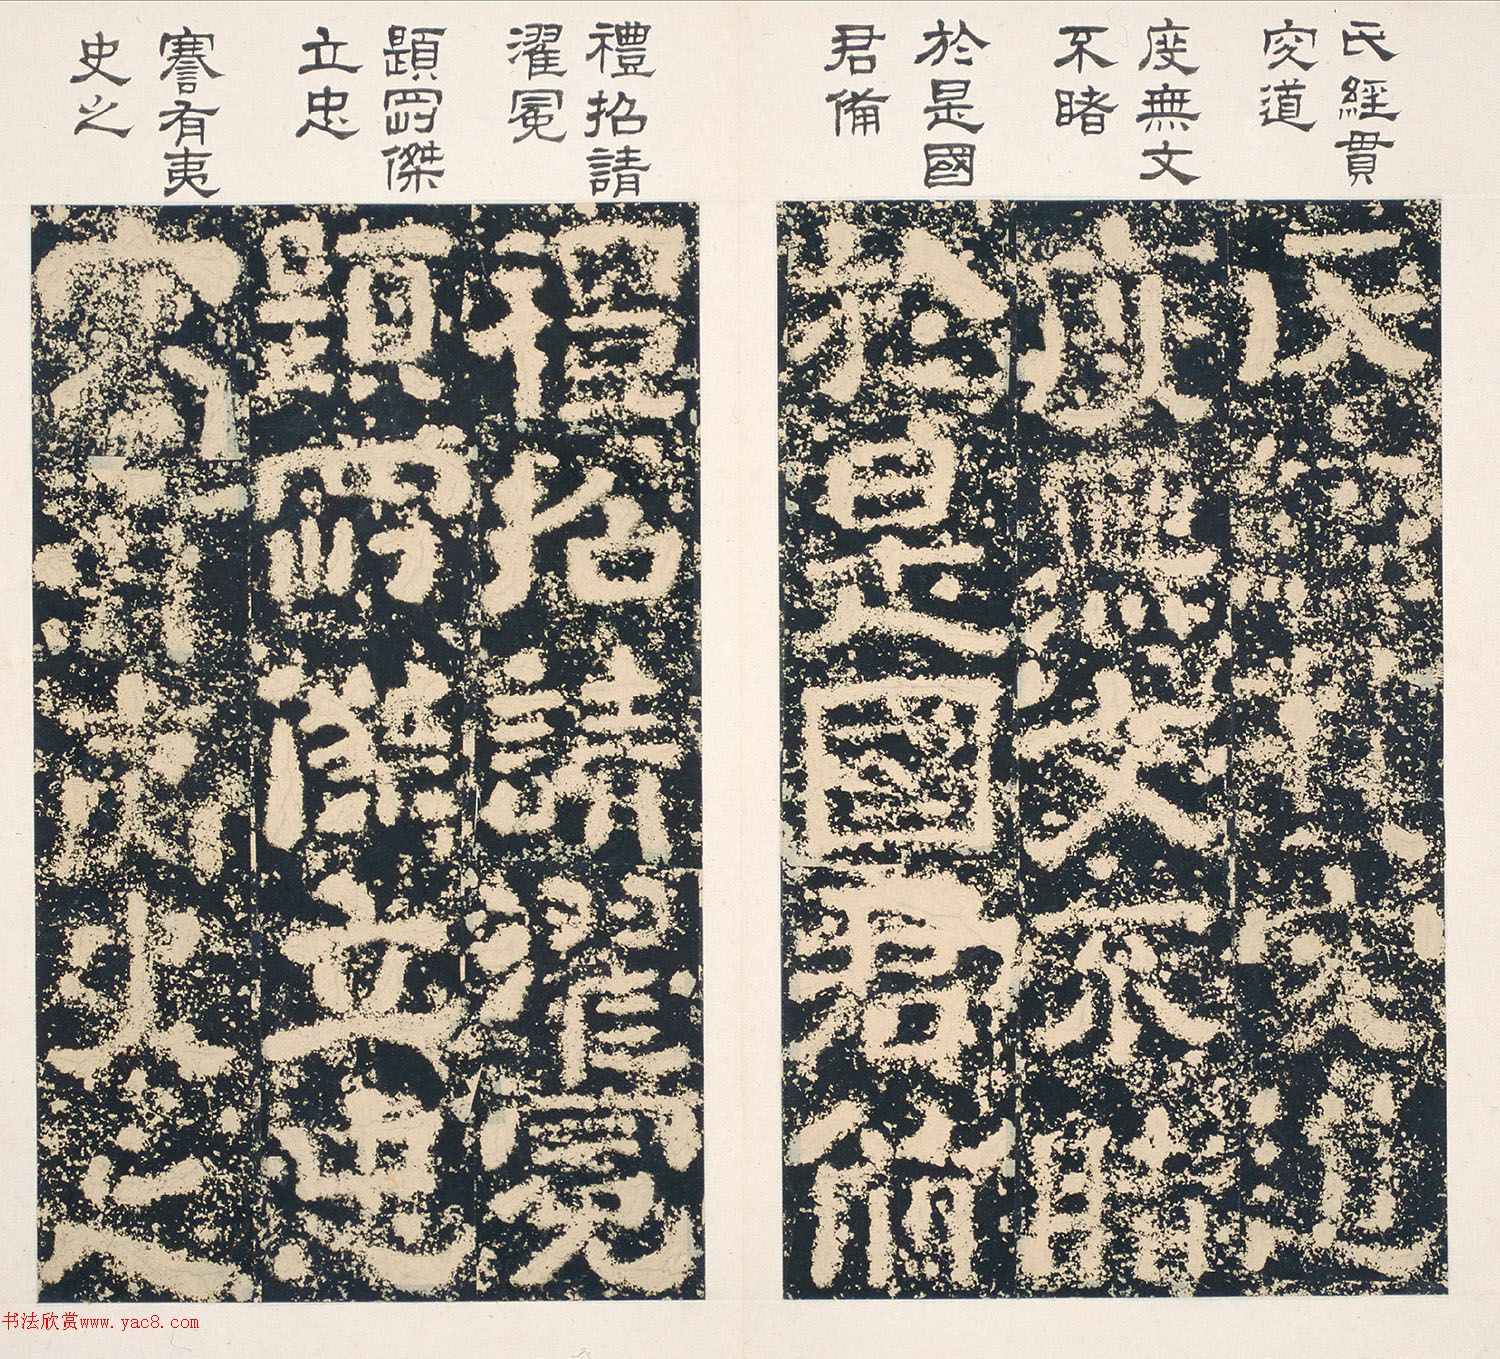 氏經貫
究道
度無文
不睹
於是國
君備
禮招請
濯冕
題剛傑
立忠
謇有夷
史之
氏經貫究道
度無文不睹
於是國君備
禮招請濯冕
題剛傑立忠
謇有夷史之
书法欣赏www.yac8.com